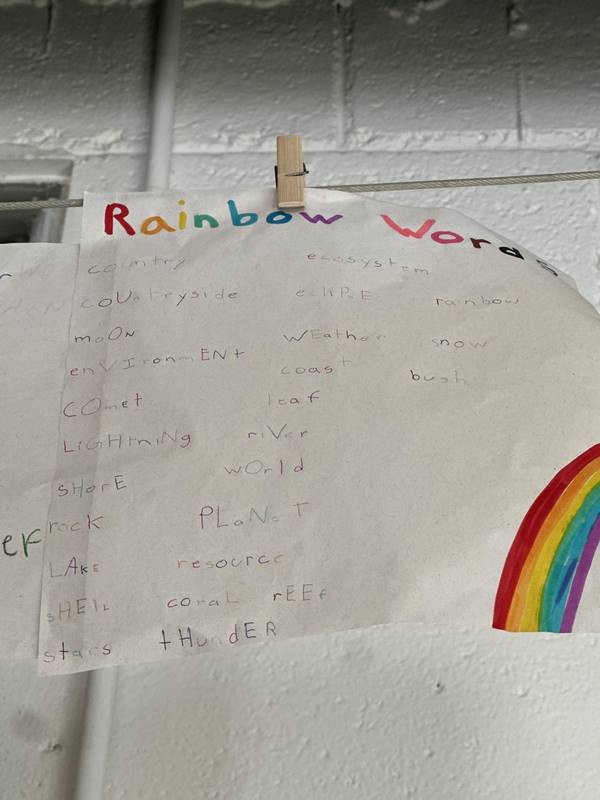 Rainbow Words
country
coUntryside
moON
enVIronmENt
COmet
LiGHtniNg
sHorE
rock
LAkE
sHElL
stars
ecosystem
eclIPsE
WEather
coast
leaf
riVer
wOrld
PLaNeT
resource
coraL rEEf
tHundER
rainbow
snow
bush
er